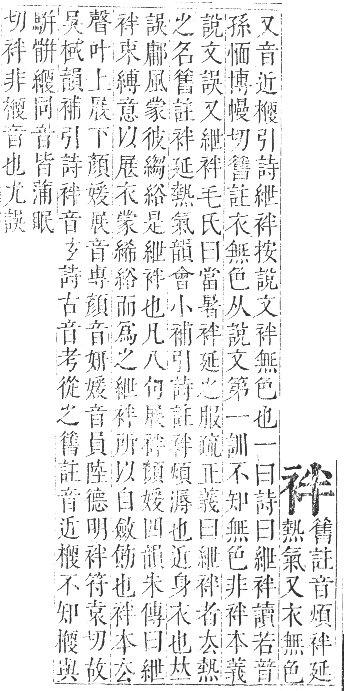 袢
舊註音煩袢延
熱氣又衣無色
又音近楩引詩紲袢按說文袢無色也一曰詩曰紲袢讀若普
孫愐博幔切舊註衣無色从說文第一訓不知無色非袢本義
說文誤又紲袢毛氏曰當暑袢延之服疏正義曰紲袢者去熱
之名舊註袢延熱氣韻會小補引詩註袢煩溽也近身衣也𠀤
誤鄘風蒙彼縐絺是紲袢也凡八句展袢顏媛四韻朱傳曰紲
袢束縛意以展衣蒙絺綌而為之紲袢所以自斂飭也袢本去
聲叶上展下顏媛展音專顏音妍媛音員陸德明袢符袁切故
吳棫韻補引詩袢音玄詩古音考從之舊註音近楩不知楩與
駢骿緶同音皆蒲眠
切袢非楩音也尤誤